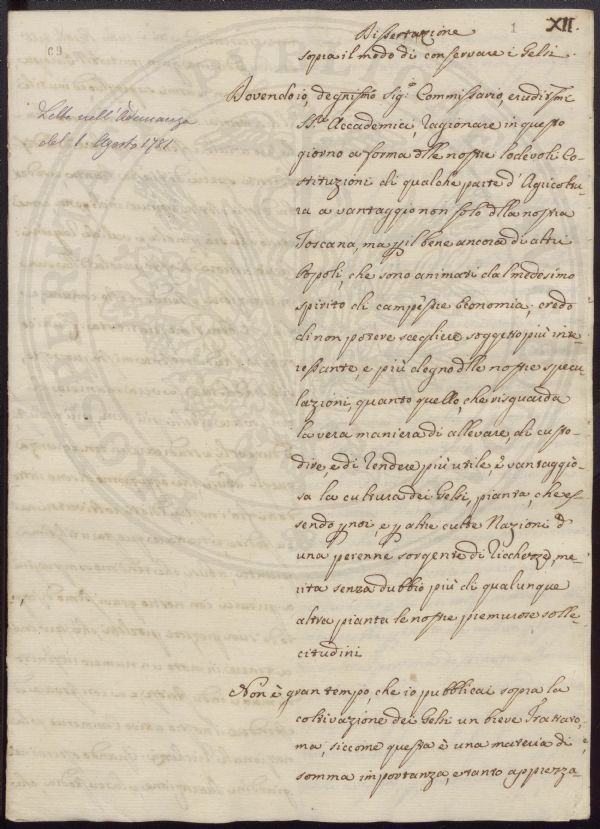 Dissertazione
1
XII.
69
sopra il modo di conservare i Gelsi
Letta nell'Adunanza
del 1. Agosto 1781.
Dovendo io, degnissmo Sigr. Commissario, eruditmi
SS.ri Accademici, ragionare in questo
giorno a forma dlle nostre lodevoli Co-
stituzioni di qualche parte d'Agricoltu-
ra a vantaggio non solo dlla nostra
Toscana, ma p il bene ancora di altri
Popoli, che sono animati dal medesimo
spirito di campestre Economia; credo
di non potere scegliere soggetto più inte-
ressante, e più degno dlle nostre specu-
lazioni, quanto quello, che risguarda
la vera maniera di allevare, di custo-
dire e di rendere più utile, e vantaggio-
sa la cultura dei Gelsi, pianta, che es-
sendo p noi, e p altre culte Nazioni
una perenne sorgente di ricchezze, me-
rita senza dubbio più di qualunque
altra pianta le nostre premurose solle-
citudini
Non è gran tempo che io pubblicai sopra la
coltivazione dei Gelsi un breve Trattato,
ma, siccome questa è una materia di
somma importanza, e tanto apprezza-